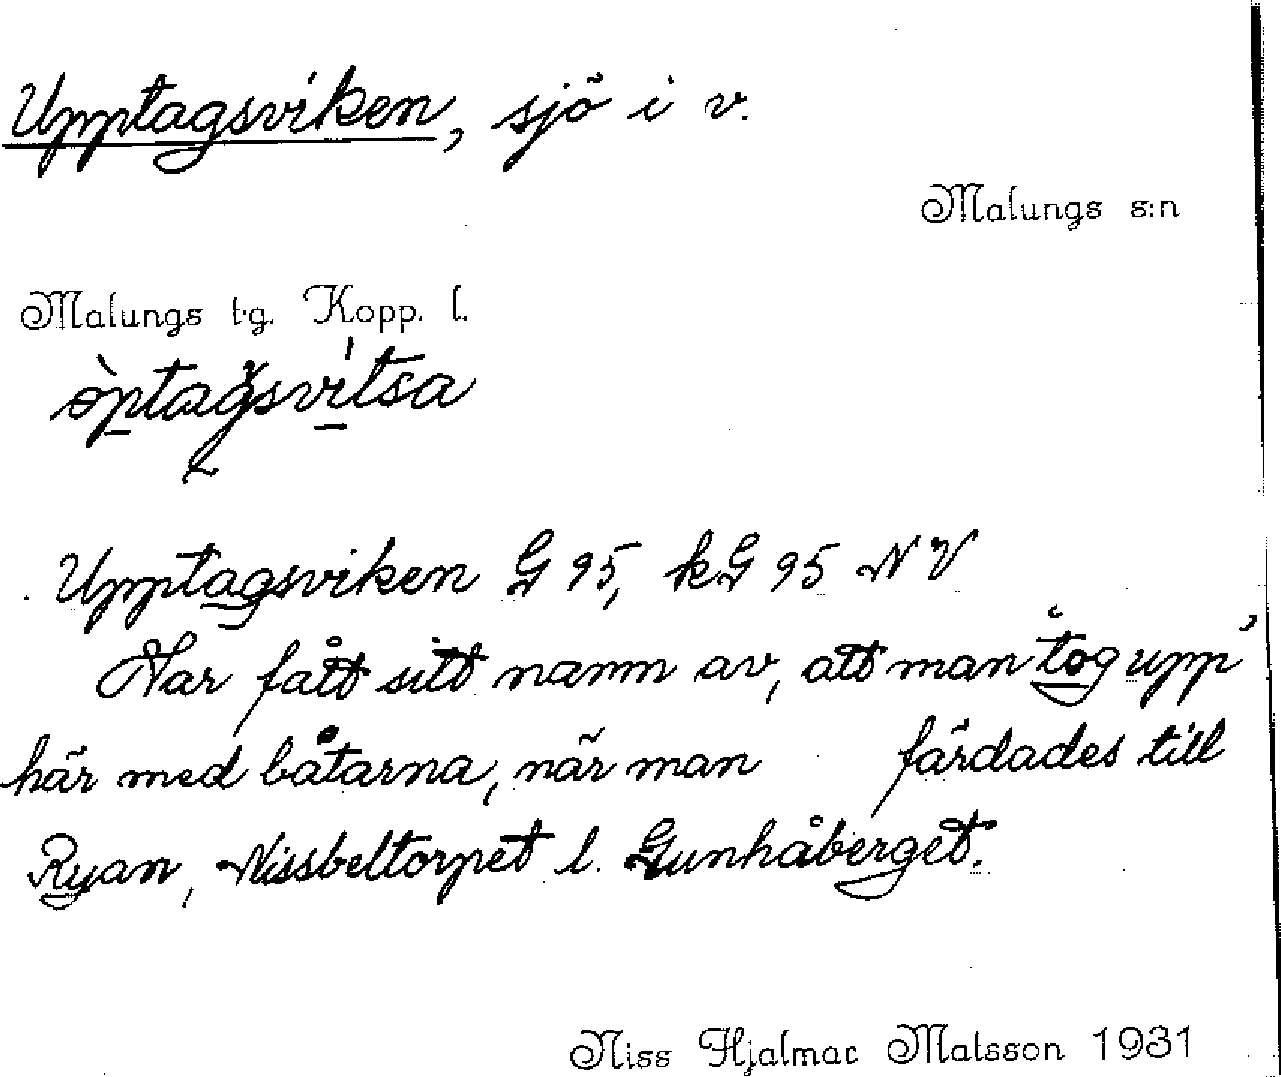 Upptagsviken, sjö i v.
Malungs s:n
Malungs tg. Kopp. l.
òptagsvitsa
Upptagsviken G 95, kG 95 NV
Har fått sitt namn av, att man tog upp
här med båtarna, när man färdades till
Ryan, Nissbeltorpet l. Gunhåberget.
Niss Hjalmar Matsson 1931